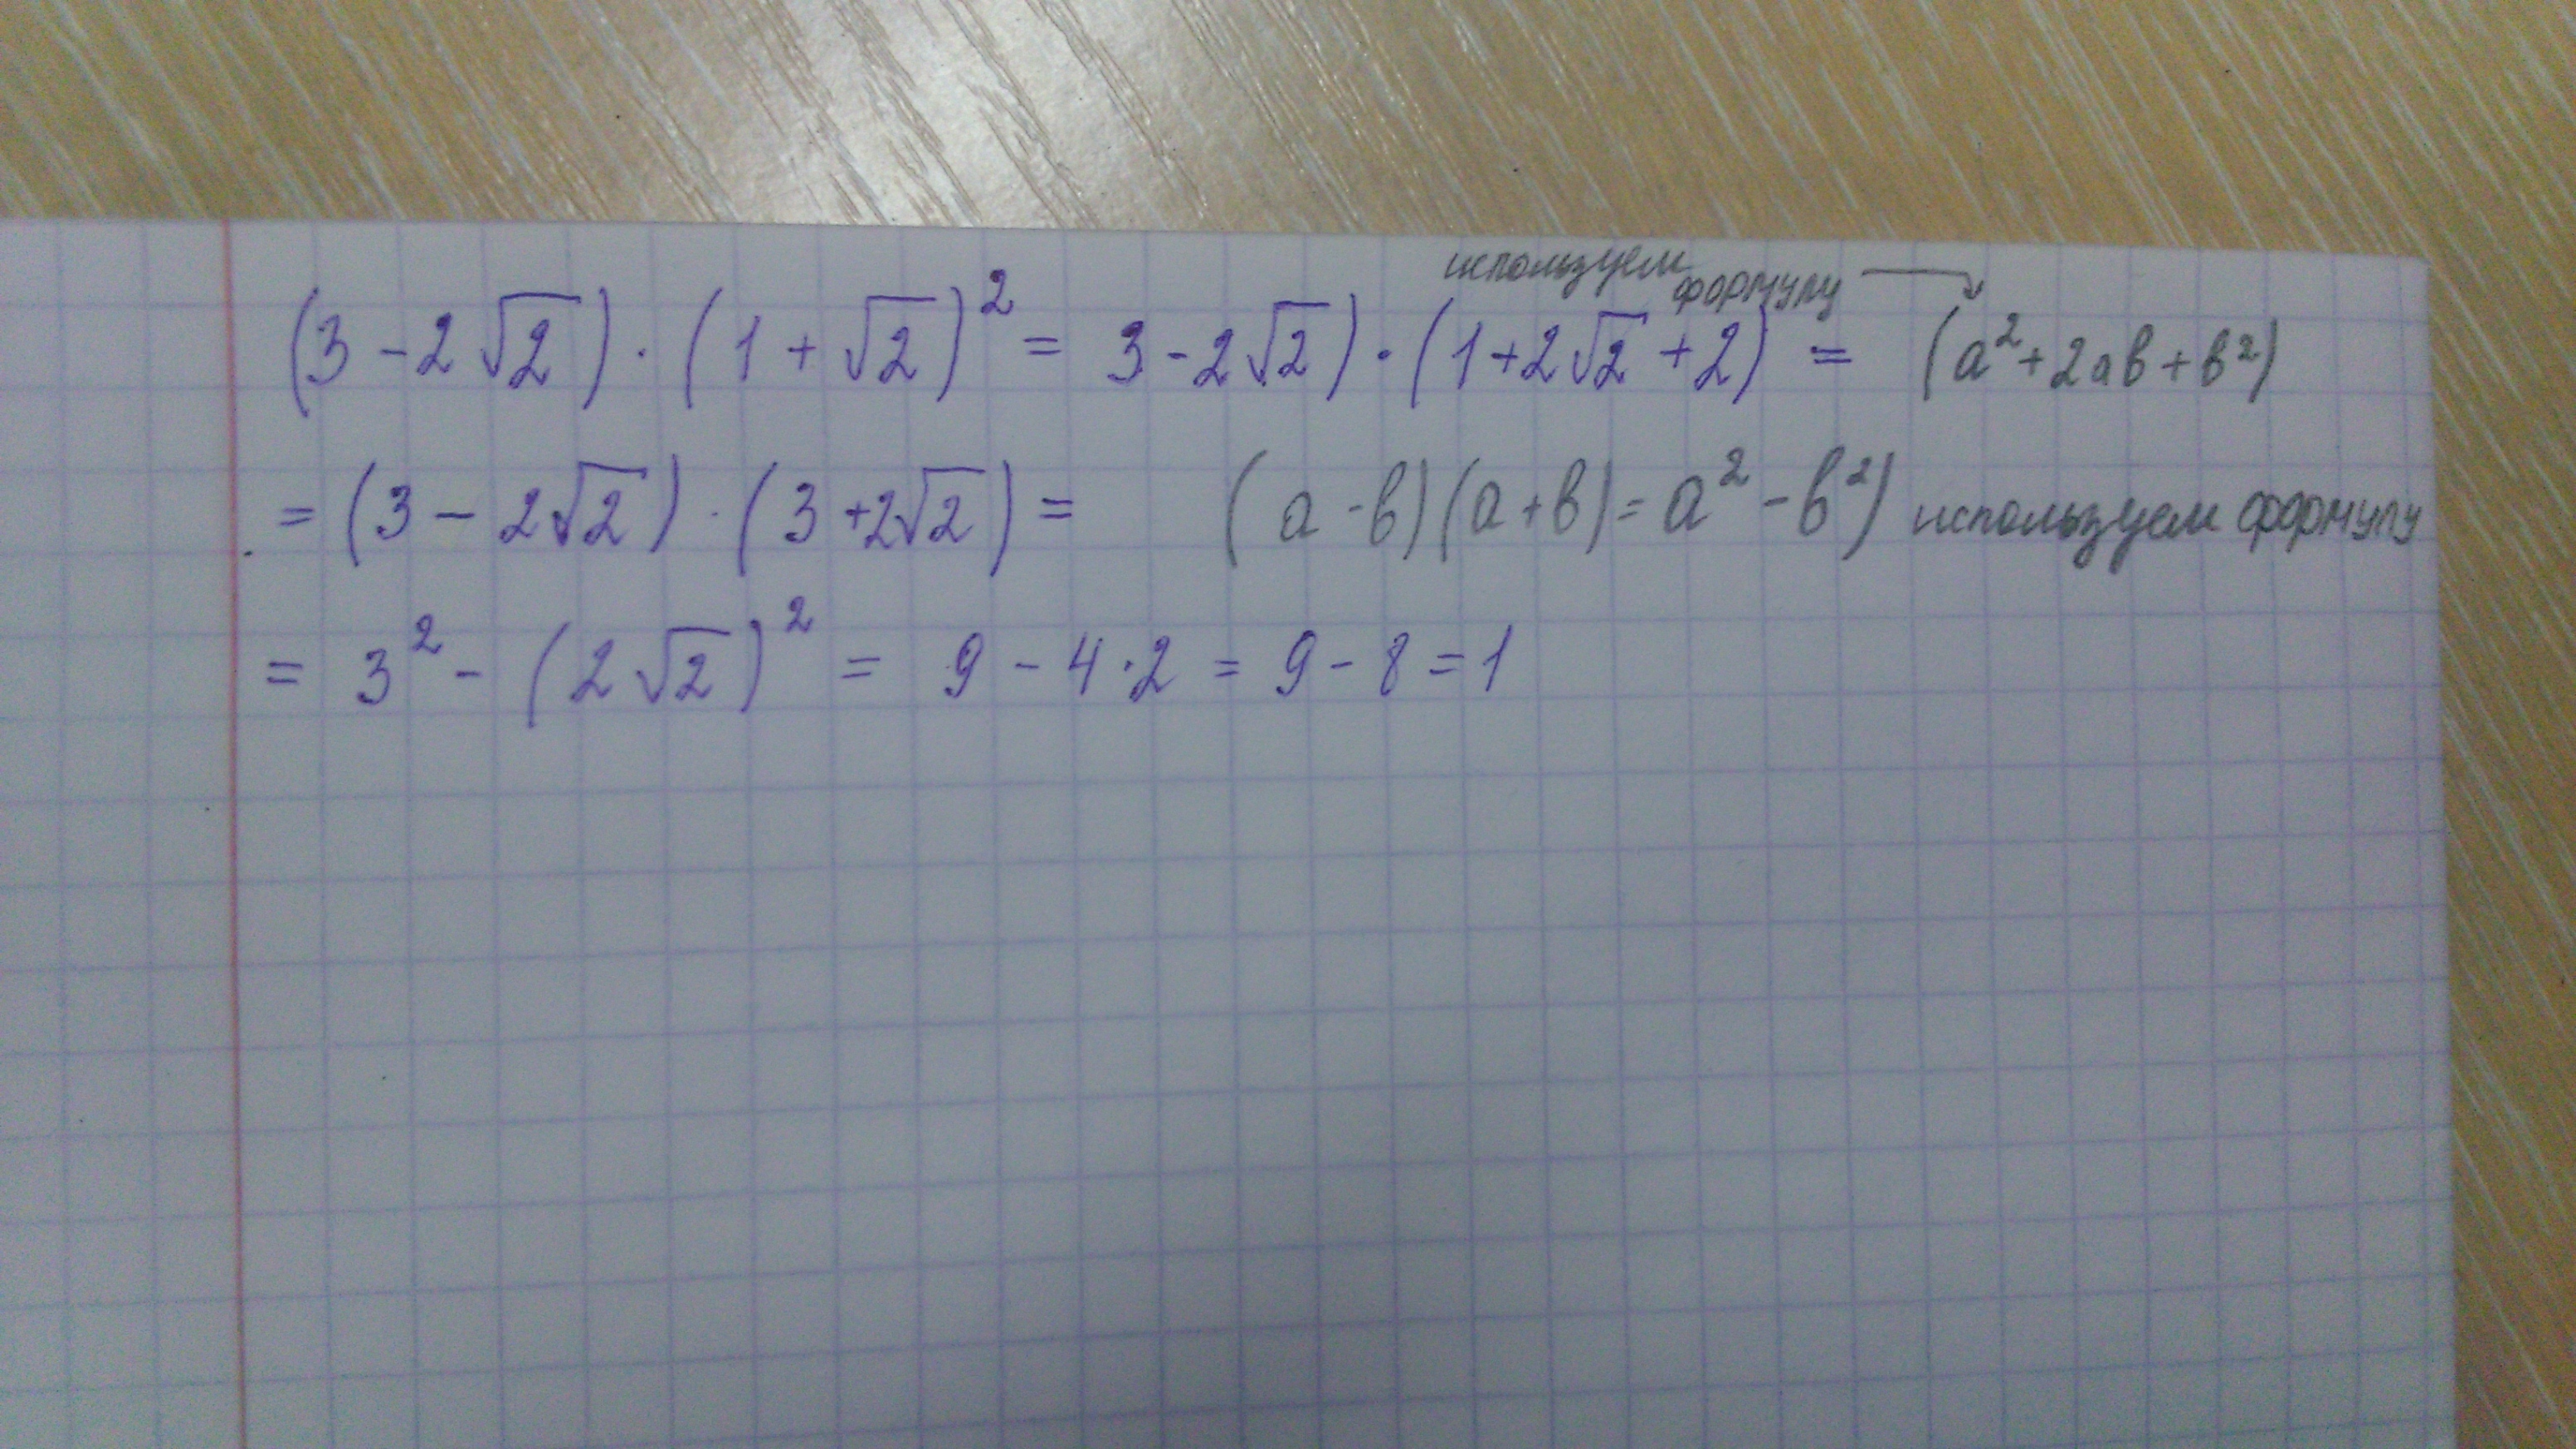 используем формулу
(3 - 2√2) · (1 + √2)² = 3 - 2√2) · (1 + 2√2 + 2) = (a² + 2ab + b²)
= (3 - 2√2) · (3 + 2√2) = (a - b)(a + b) = a² - b²) используем формулу
= 3² - (2√2)² = 9 - 4·2 = 9 - 8 = 1